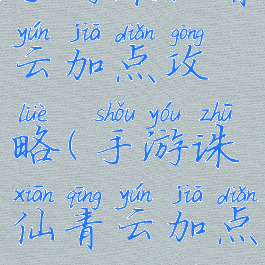 yún jiā diǎn gòng
云加点攻
lüè shǒu yóu zhū
略(手游诛
xiān qīng yún jiā diǎn
仙青云加点